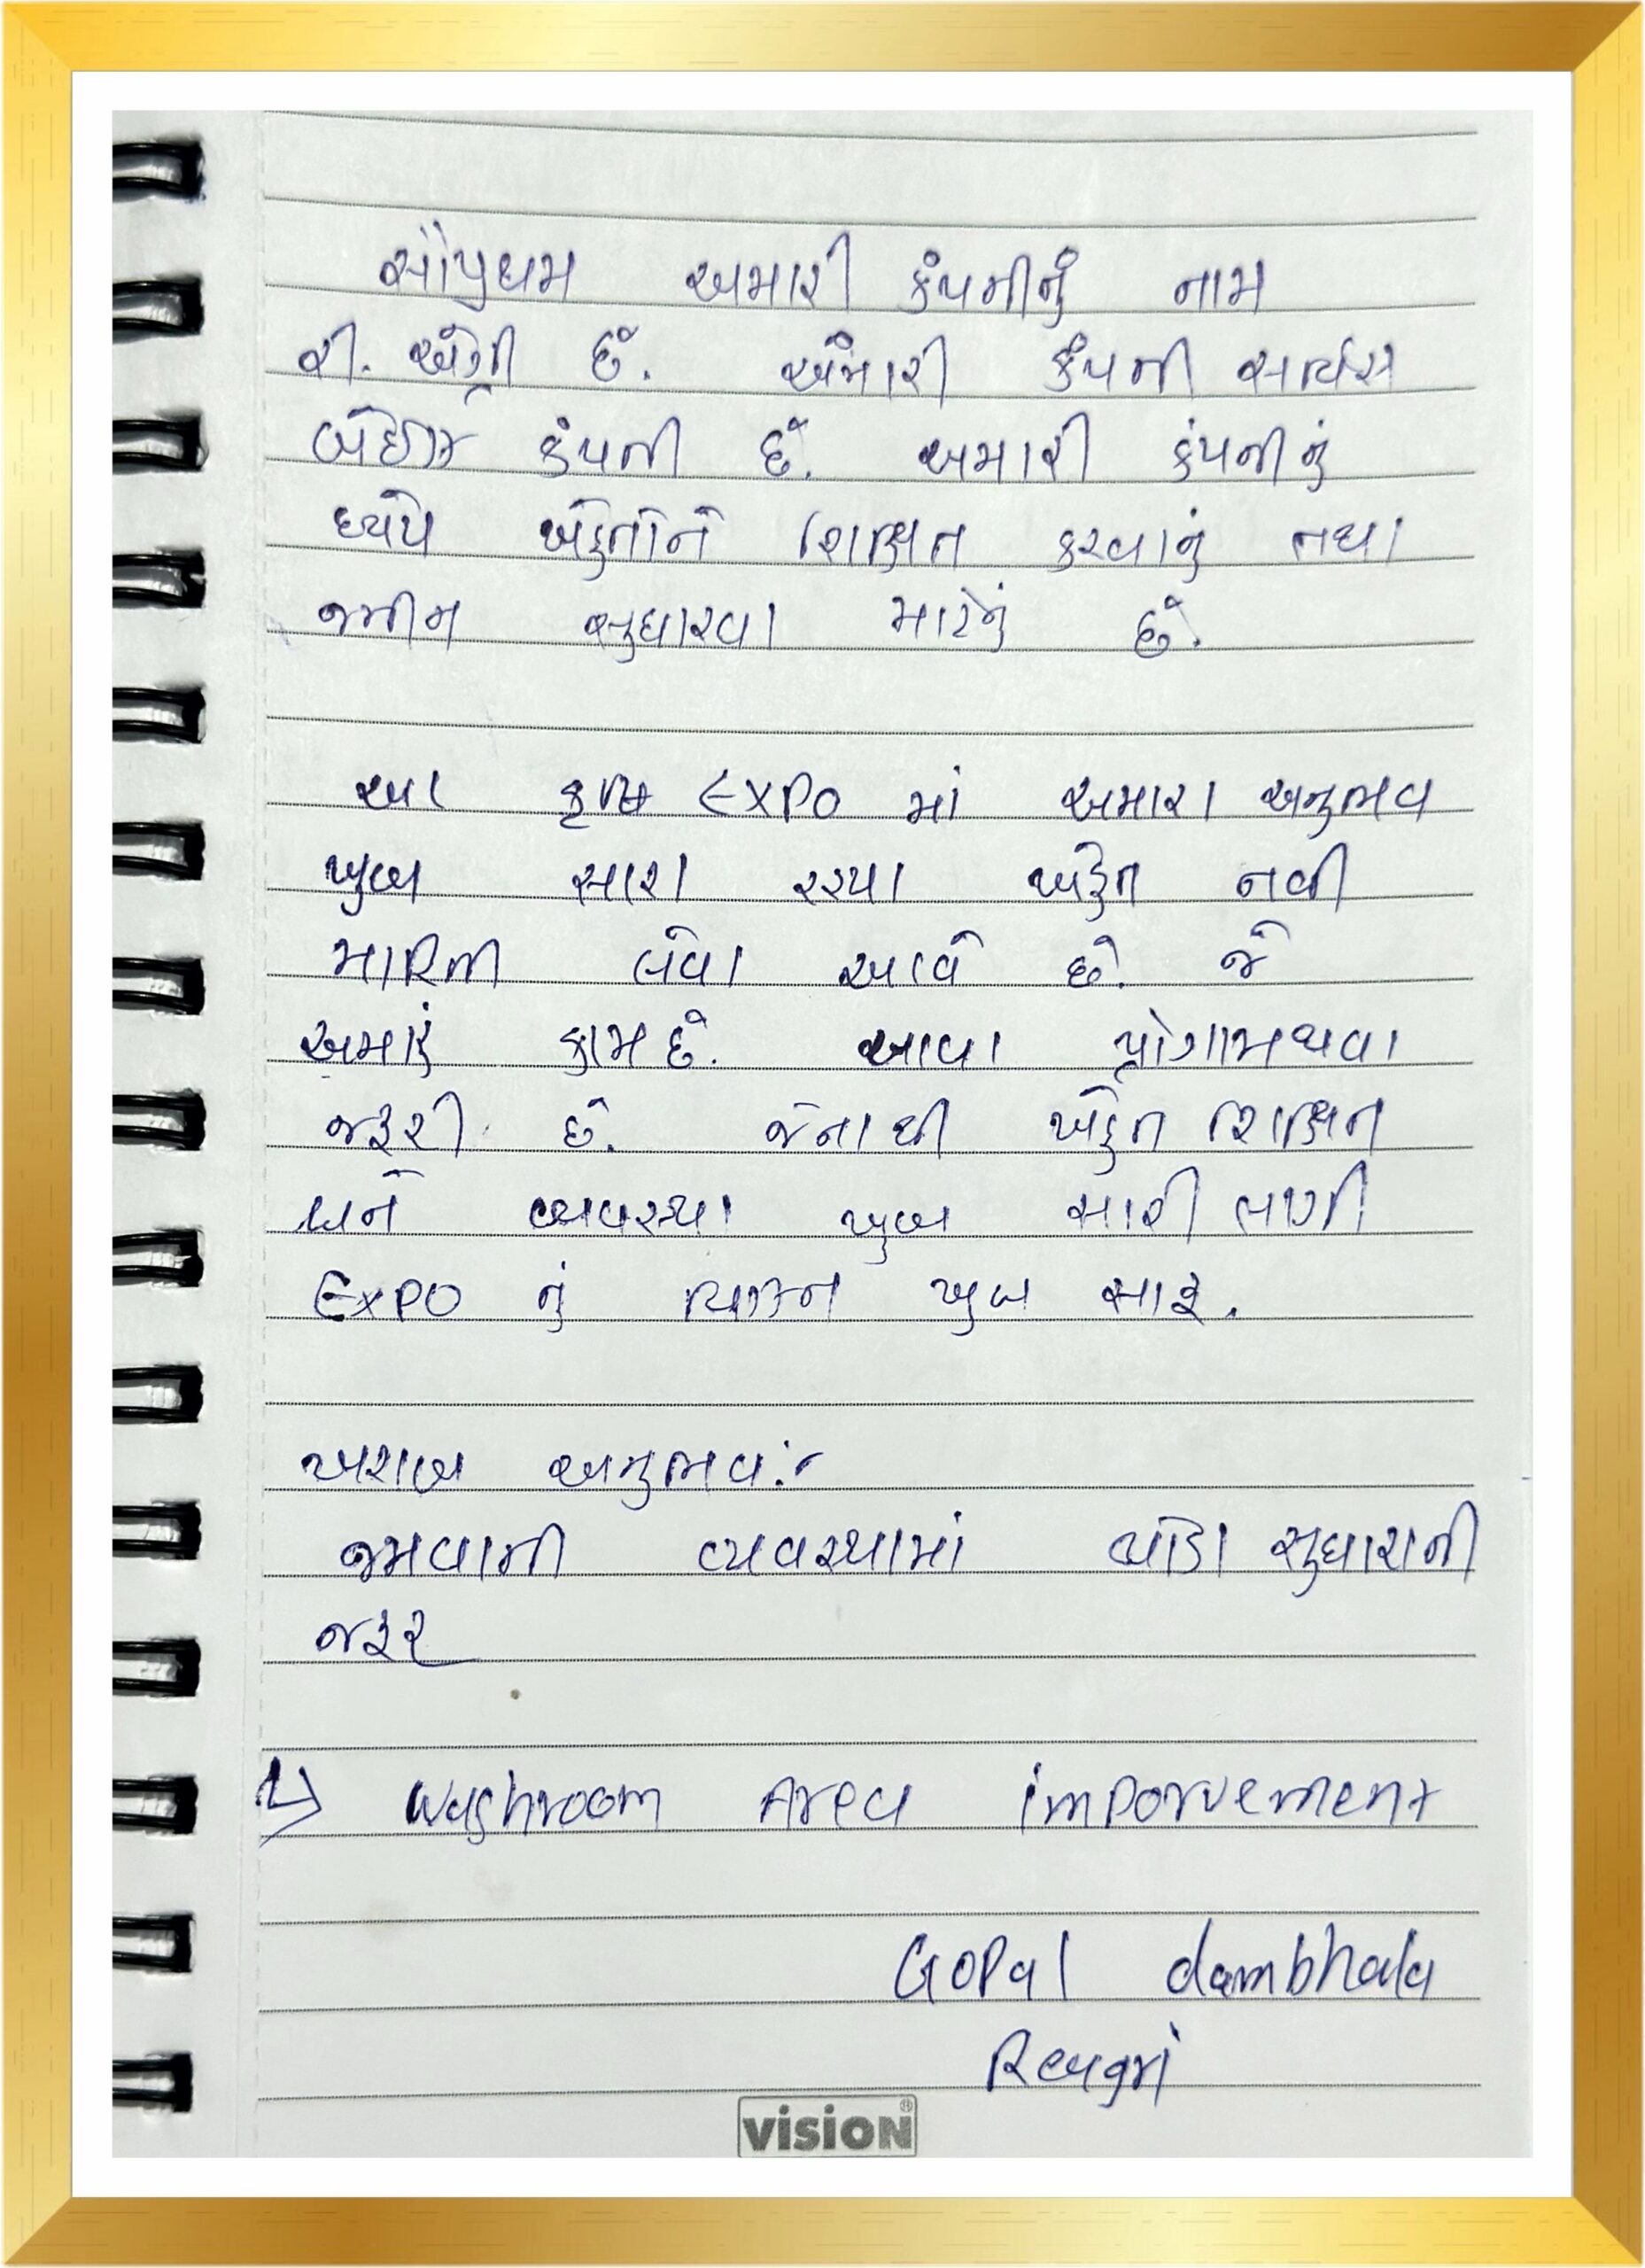 સૌપ્રથમ અમારી કંપનીનું નામ
રી. એગ્રી છે. અમારી કંપની સર્વિસ
બેઈઝ કંપની છે. અમારી કંપનીનું
ધ્યેય ખેડુતોને શિક્ષિત કરવાનું તથા
જમીન સુધારવા માટેનું છે.
આ કૃષિ EXPO માં અમારા અનુભવ
ખુબ સારા રહ્યા ખેડુત નવી
માહિતી લેવા આવે છે. જે
અમારૂં કામ છે. આવા પ્રોગ્રામ થવા
જરૂરી છે. જેનાથી ખેડુત શિક્ષિત
બને વ્યવસ્થા ખુબ સારી લાગી
EXPO નું ખુબ સારૂ.
ખરાબ અનુભવ:-
જમવાની વ્યવસ્થામાં થોડા સુધારાની
જરૂર
→ Washroom Area imporvement
Gopal dambhala
Reagri
VISION®